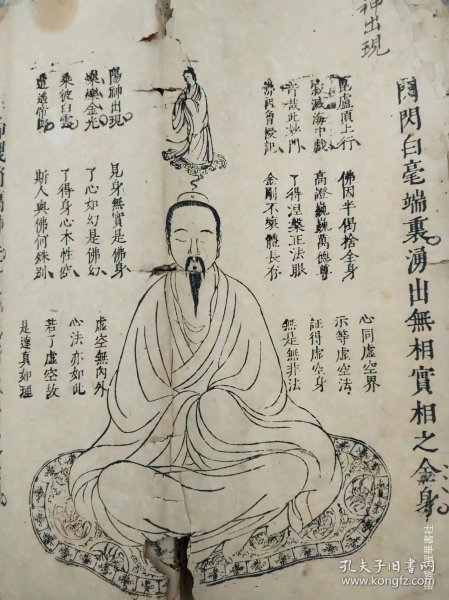 神出現
閃閃白毫端裏湧出無相實相之金身
毘盧頂上行
寂滅海中戲
奇哉此妙門
佛祖曾授記
佛因半偈捨全身
高證巍巍萬德尊
了得涅槃正法眼
金剛不壞體長存
心同虛空界
示等虛空法
証得虛空身
無是無非法
陽神出現
金光
乘彼白雲
逍遙帝鄉
見身無實是佛身
了心如幻是佛幻
了得身心本性空
斯人與佛何殊別
虛空無內外
心法亦如此
若了虛空故
是達真如理
孔夫子旧书网
kongfz.com